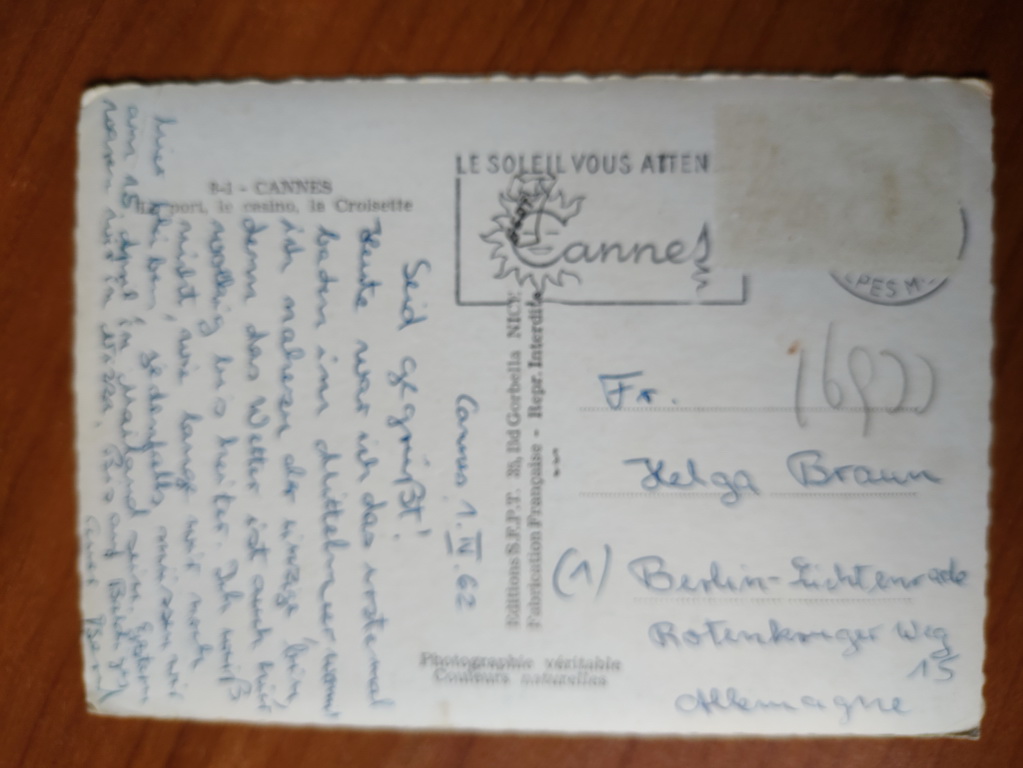 8-1 - CANNES
Le port, le casino, la Croisette
LE SOLEIL VOUS ATTEN
Cannes
PES M
Cannes, 1. IV. 62
Seid gegrüßt!
Heute war ich das erste mal
baden im Mittelmeer, wenn
ich nahezu der einzige bin,
denn das Wetter ist auch hier
wolkig bis heiter. Ich weiß
nicht, wie lange wir noch
hier bleiben, jedenfalls müssen wir
am 15. April in Mailand sein. Gestern
waren wir in Bis auf
Euer Bernd
Editions S.E.P.T. Bld Gorbella NICE
Fabrication Française - Repr. Interdite
Photographie véritable
Couleurs naturelles
Fr.
Helga Braun
(1) Berlin-Lichtenrade
Rotenkruger Weg
15
Allemagne